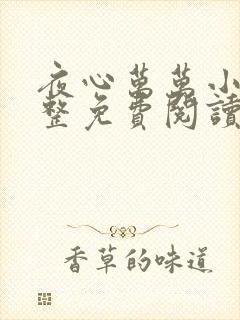 夜心萬萬小
整免費閱讀
香草的味道